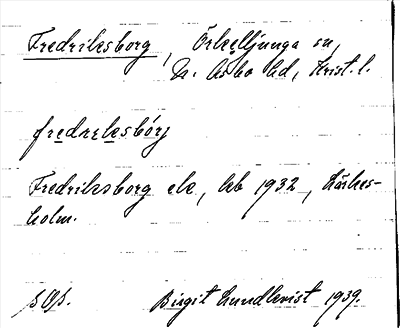 Fredriksborg, Örkelljunga sn,
N. Åsbo hd, Krist. l.
fredreksbórj
Fredriksborg ek, kb 1932, Kärkes-
holm.
Birgit Lundkvist 1939.